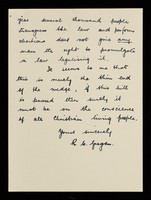 year several thousand people
transgress the law and perform
abortions does not give any
man the right to promulgate
a law legalising it.
It seems to me that
this is merely the thin end
of the wedge, if this bill
is passed then surely it
must be on the conscience
of all Christian living people.
Yours sincerely